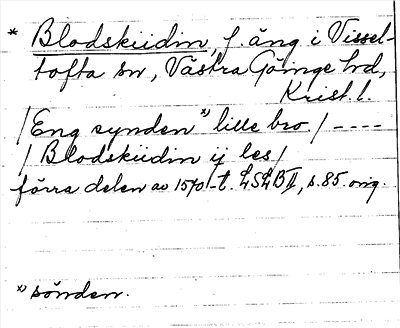 * Blodskiidin, f. äng i Vissel-
tofta sn, Västra Göinge hd,
Krist. l.
/Eng synden *) lille bro / ----
/ Blodskiidin ij les/
förra delen av 1570-t. LSLB II, s. 85. orig.
*) sönden.